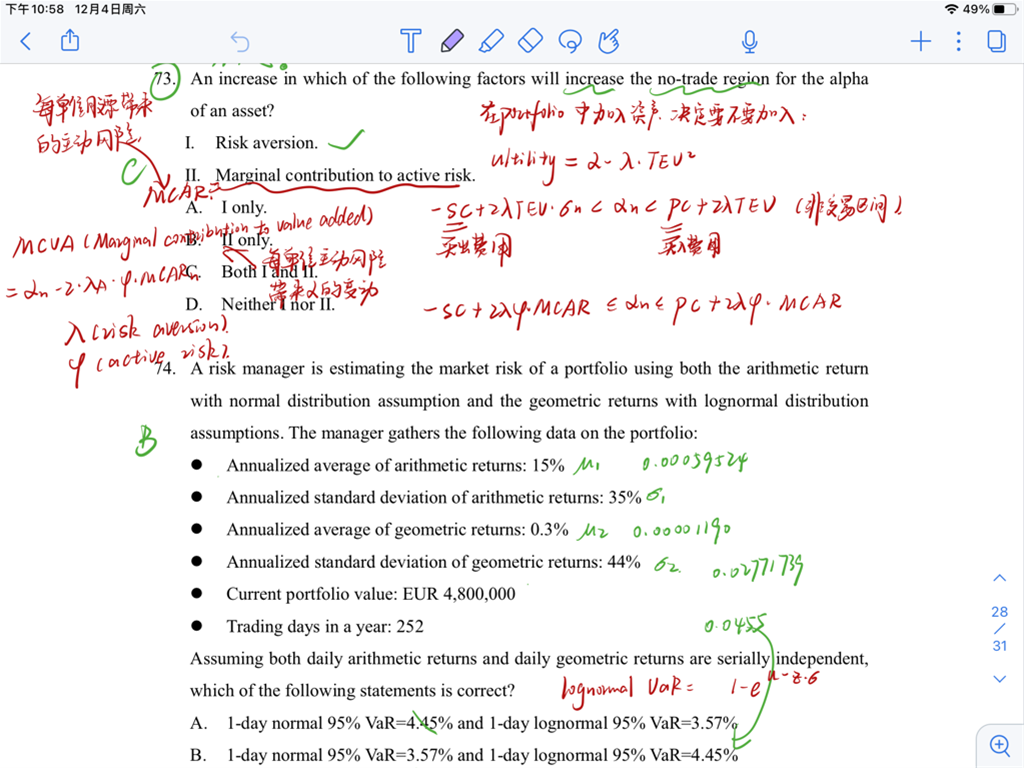 下午10:58 12月4日周六
49%
73. An increase in which of the following factors will increase the no-trade region for the alpha
of an asset?
每单位
带来
的主动风险
在portfolio 中加入资产,决定要不要加入:
I. Risk aversion.
Ultility = α - λ·TEV²
C
II. Marginal contribution to active risk.
MCAR:
A. I only.
-SC+2λTEV·σn < αn < PC+2λTEV (非交易区间)
卖出费用
买入费用
MCVA (Marginal contribution to value added)
B. II only.
每单位主动风险
带来α的变动
C. Both I and II.
= αn - 2·λA·φ·MCARn
D. Neither I nor II.
-SC+2λφ·MCAR ≤ αn ≤ PC+2λφ·MCAR
λ (risk aversion)
φ (active risk)
74. A risk manager is estimating the market risk of a portfolio using both the arithmetic return
with normal distribution assumption and the geometric returns with lognormal distribution
assumptions. The manager gathers the following data on the portfolio:
B
● Annualized average of arithmetic returns: 15% μ1 0.00059524
● Annualized standard deviation of arithmetic returns: 35% σ1
● Annualized average of geometric returns: 0.3% μ2 0.00001190
● Annualized standard deviation of geometric returns: 44% σ2 0.02771739
● Current portfolio value: EUR 4,800,000
● Trading days in a year: 252
0.0455
Assuming both daily arithmetic returns and daily geometric returns are serially independent,
which of the following statements is correct?
lognormal VaR= 1-e^μ-z·σ
A. 1-day normal 95% VaR=4.45% and 1-day lognormal 95% VaR=3.57%
B. 1-day normal 95% VaR=3.57% and 1-day lognormal 95% VaR=4.45%
28
/
31